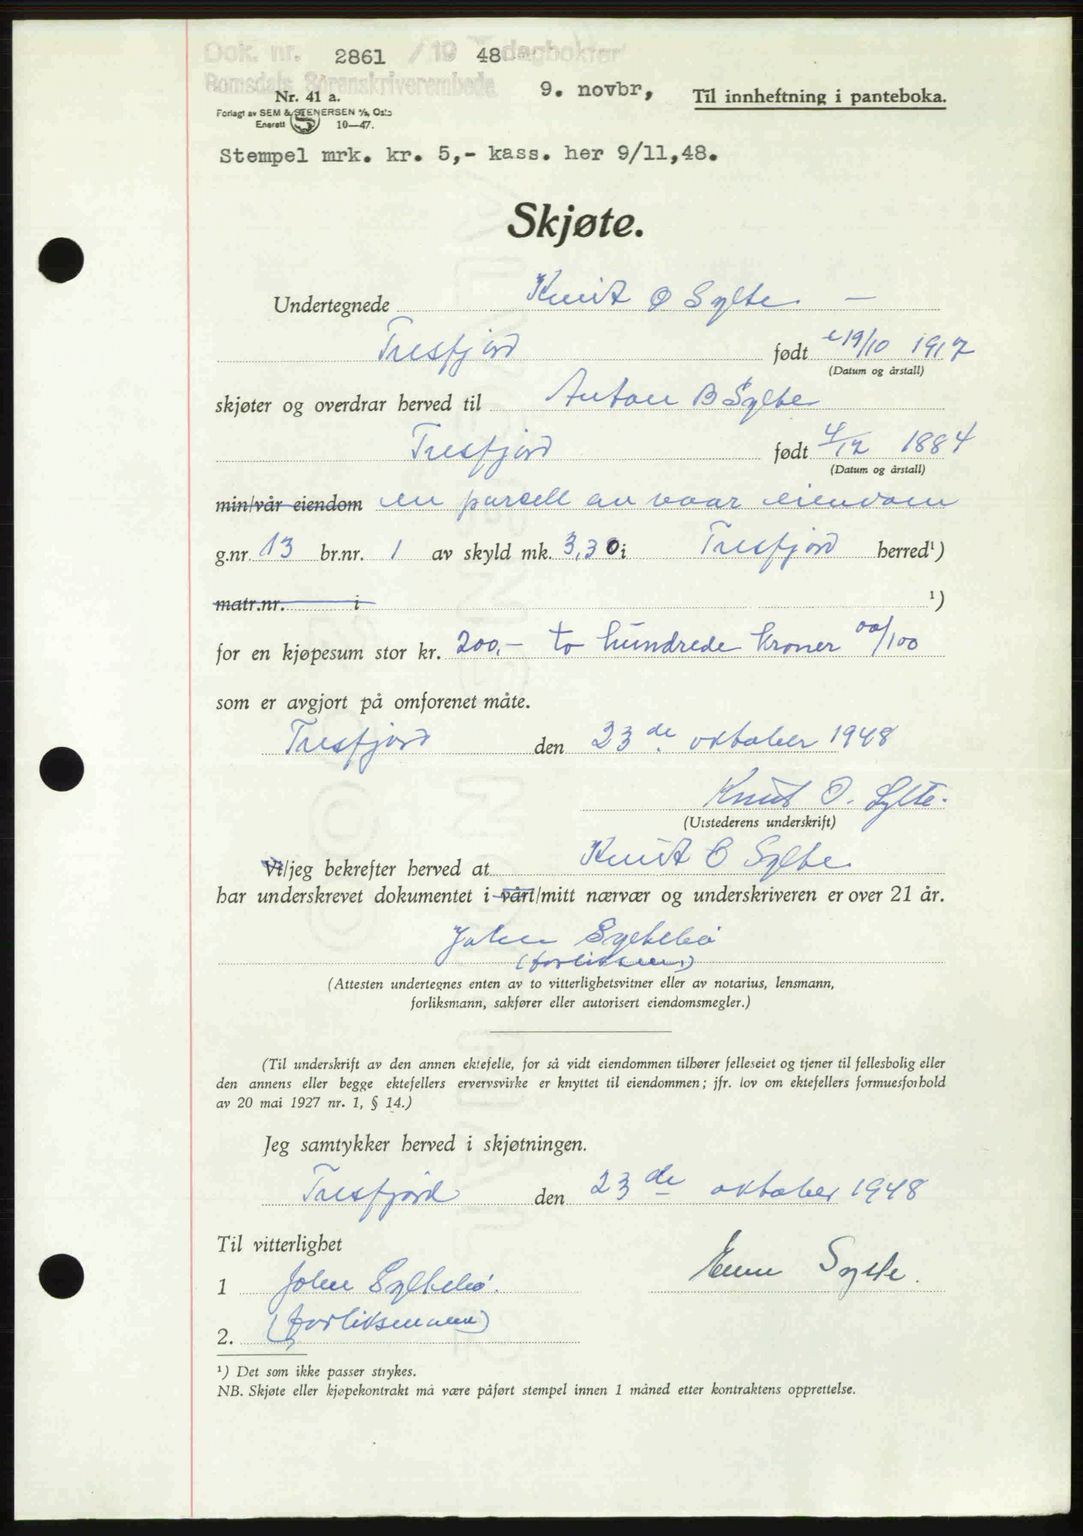 Dok. nr. 2861 / 19 48 dagbokført
Romsdals Sorenskriverembede
9. novbr,
Til innheftning i panteboka.
Nr. 41 a.
Forlagt av SEM & STENERSEN A/S, Oslo
Enerett S 10—47.
Stempel mrk. kr. 5,- kass. her 9/11,48.
Skjøte.
Undertegnede Knut O Sylte. —
Tresfjord født 19/10 1917
(Datum og årstall)
skjøter og overdrar herved til Anton B Sylte
Tresfjord født 4/12 1884
(Datum og årstall)
min/vår eiendom en parsell av vaar eiendom
g.nr. 13 br.nr. 1 av skyld mk. 3,30 i Tresfjord herred¹)
matr.nr. i ¹)
for en kjøpesum stor kr. 200,- to hundrede kroner 00/100
som er avgjort på omforenet måte.
Tresfjord den 23de. oktober 1948
Knut O. Sylte.
(Utstederens underskrift)
Vi/jeg bekrefter herved at Knut O Sylte.
har underskrevet dokumentet i vårt/mitt nærvær og underskriveren er over 21 år.
Johan Syltebø
(forliksmann)
(Attesten undertegnes enten av to vitterlighetsvitner eller av notarius, lensmann,
forliksmann, sakfører eller autorisert eiendomsmegler.)
(Til underskrift av den annen ektefelle, for så vidt eiendommen tilhører felleseiet og tjener til fellesbolig eller
den annens eller begge ektefellers ervervsvirke er knyttet til eiendommen; jfr. lov om ektefellers formuesforhold
av 20 mai 1927 nr. 1, § 14.)
Jeg samtykker herved i skjøtningen.
Tresfjord den 23de oktober 1948
Til vitterlighet
Sylte.
1 Johan Syltebø.
(forliksmann)
2.
¹) Det som ikke passer strykes.
NB. Skjøte eller kjøpekontrakt må være påført stempel innen 1 måned etter kontraktens opprettelse.